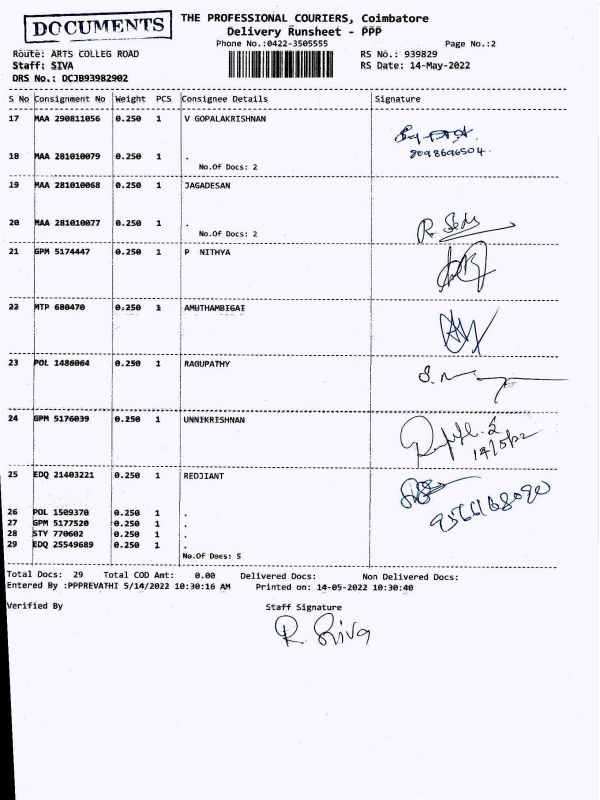 DOCUMENTS
THE PROFESSIONAL COURIERS, Coimbatore
Delivery Runsheet - PPP
Phone No.:0422-3505555 Page No.:2
Route: ARTS COLLEG ROAD RS No.: 939829
Staff: SIVA RS Date: 14-May-2022
DRS No.: DCJB93982902
S No Consignment No Weight PCS Consignee Details Signature
17 MAA 290811056 0.250 1 V GOPALAKRISHNAN
8098696504.
18 MAA 281010079 0.250 1 .
No.Of Docs: 2
19 MAA 281010068 0.250 1 JAGADESAN
20 MAA 281010077 0.250 1 .
No.Of Docs: 2
21 GPM 5174447 0.250 1 P NITHYA
22 MTP 680470 0.250 1 AMUTHAMBIGAI
23 POL 1486064 0.250 1 RAGUPATHY
24 GPM 5176039 0.250 1 UNNIKRISHNAN
14/5/22
25 EDQ 21403221 0.250 1 REDJIANT
26 POL 1509370 0.250 1 .
27 GPM 5177520 0.250 1 .
28 STY 770602 0.250 1 .
29 EDQ 25549689 0.250 1 .
No.Of Docs: 5
Total Docs: 29 Total COD Amt: 0.00 Delivered Docs: Non Delivered Docs:
Entered By :PPPREVATHI 5/14/2022 10:30:16 AM Printed on: 14-05-2022 10:30:40
Verified By Staff Signature
R. Siva